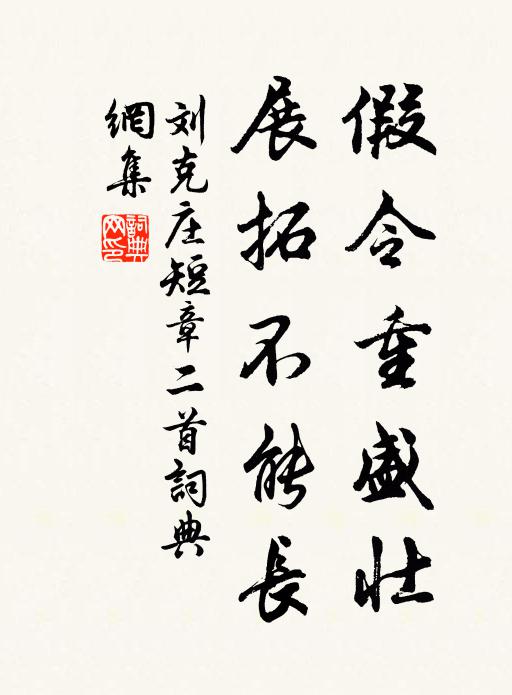 假令重盛壯
展拓不能長
刘克庄短章二首詞典
網集
詞典
网印